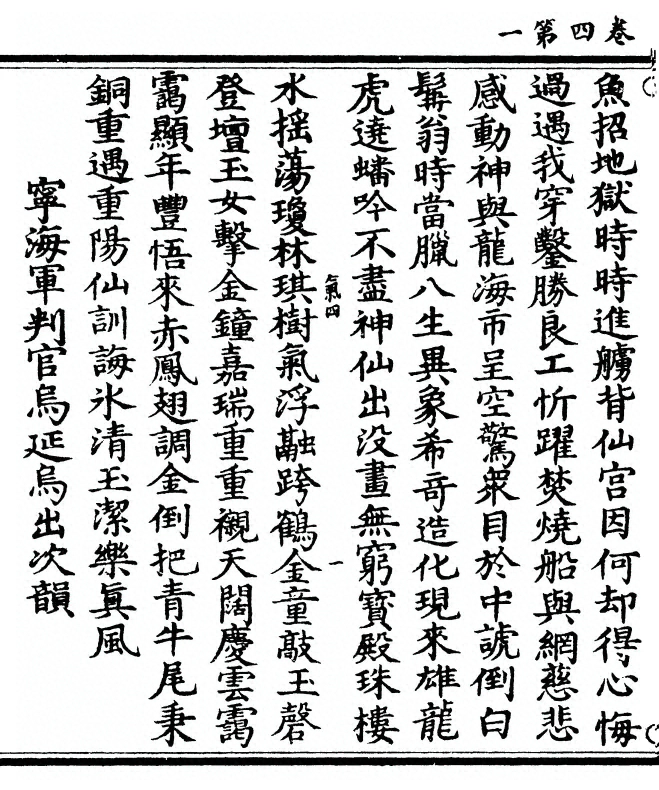 卷四第一
魚招地獄時時進艣背仙宫因何却得心悔
過遇我穿鑿勝良工忻躍焚燒船與網慈悲
感動神與龍海市呈空驚衆目於中諕倒白
髯翁時當臘八生異象希奇造化現來雄龍
虎遶蟠吟不盡神仙出没畫無窮寳殿珠樓
氣四
一
水揺蕩瓊林琪樹氣浮融跨鶴金童敲玉磬
登壇玉女擊金鐘嘉瑞重重襯天闊慶雲靄
靄顯年豐悟來赤鳳翅調金倒把青牛尾秉
銅重遇重陽仙訓誨氷清玉潔樂真風
寧海軍判官烏延烏出次韻